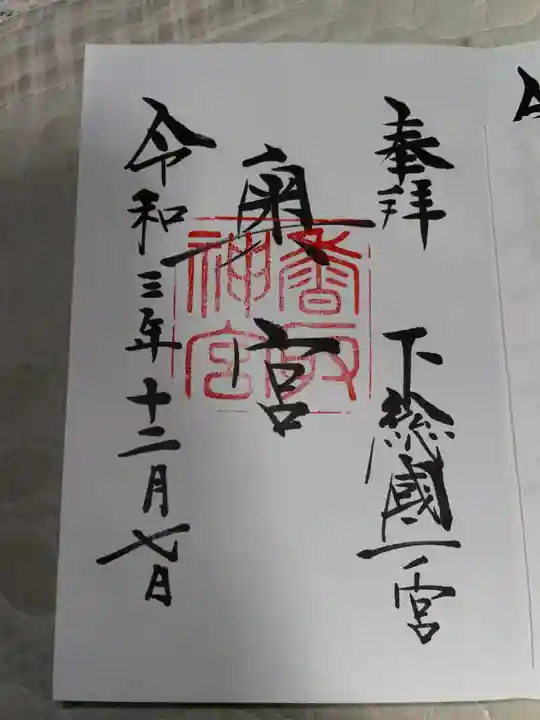 奉拝
下総國一宮
奥宮
香取神宮
令和三年十二月七日